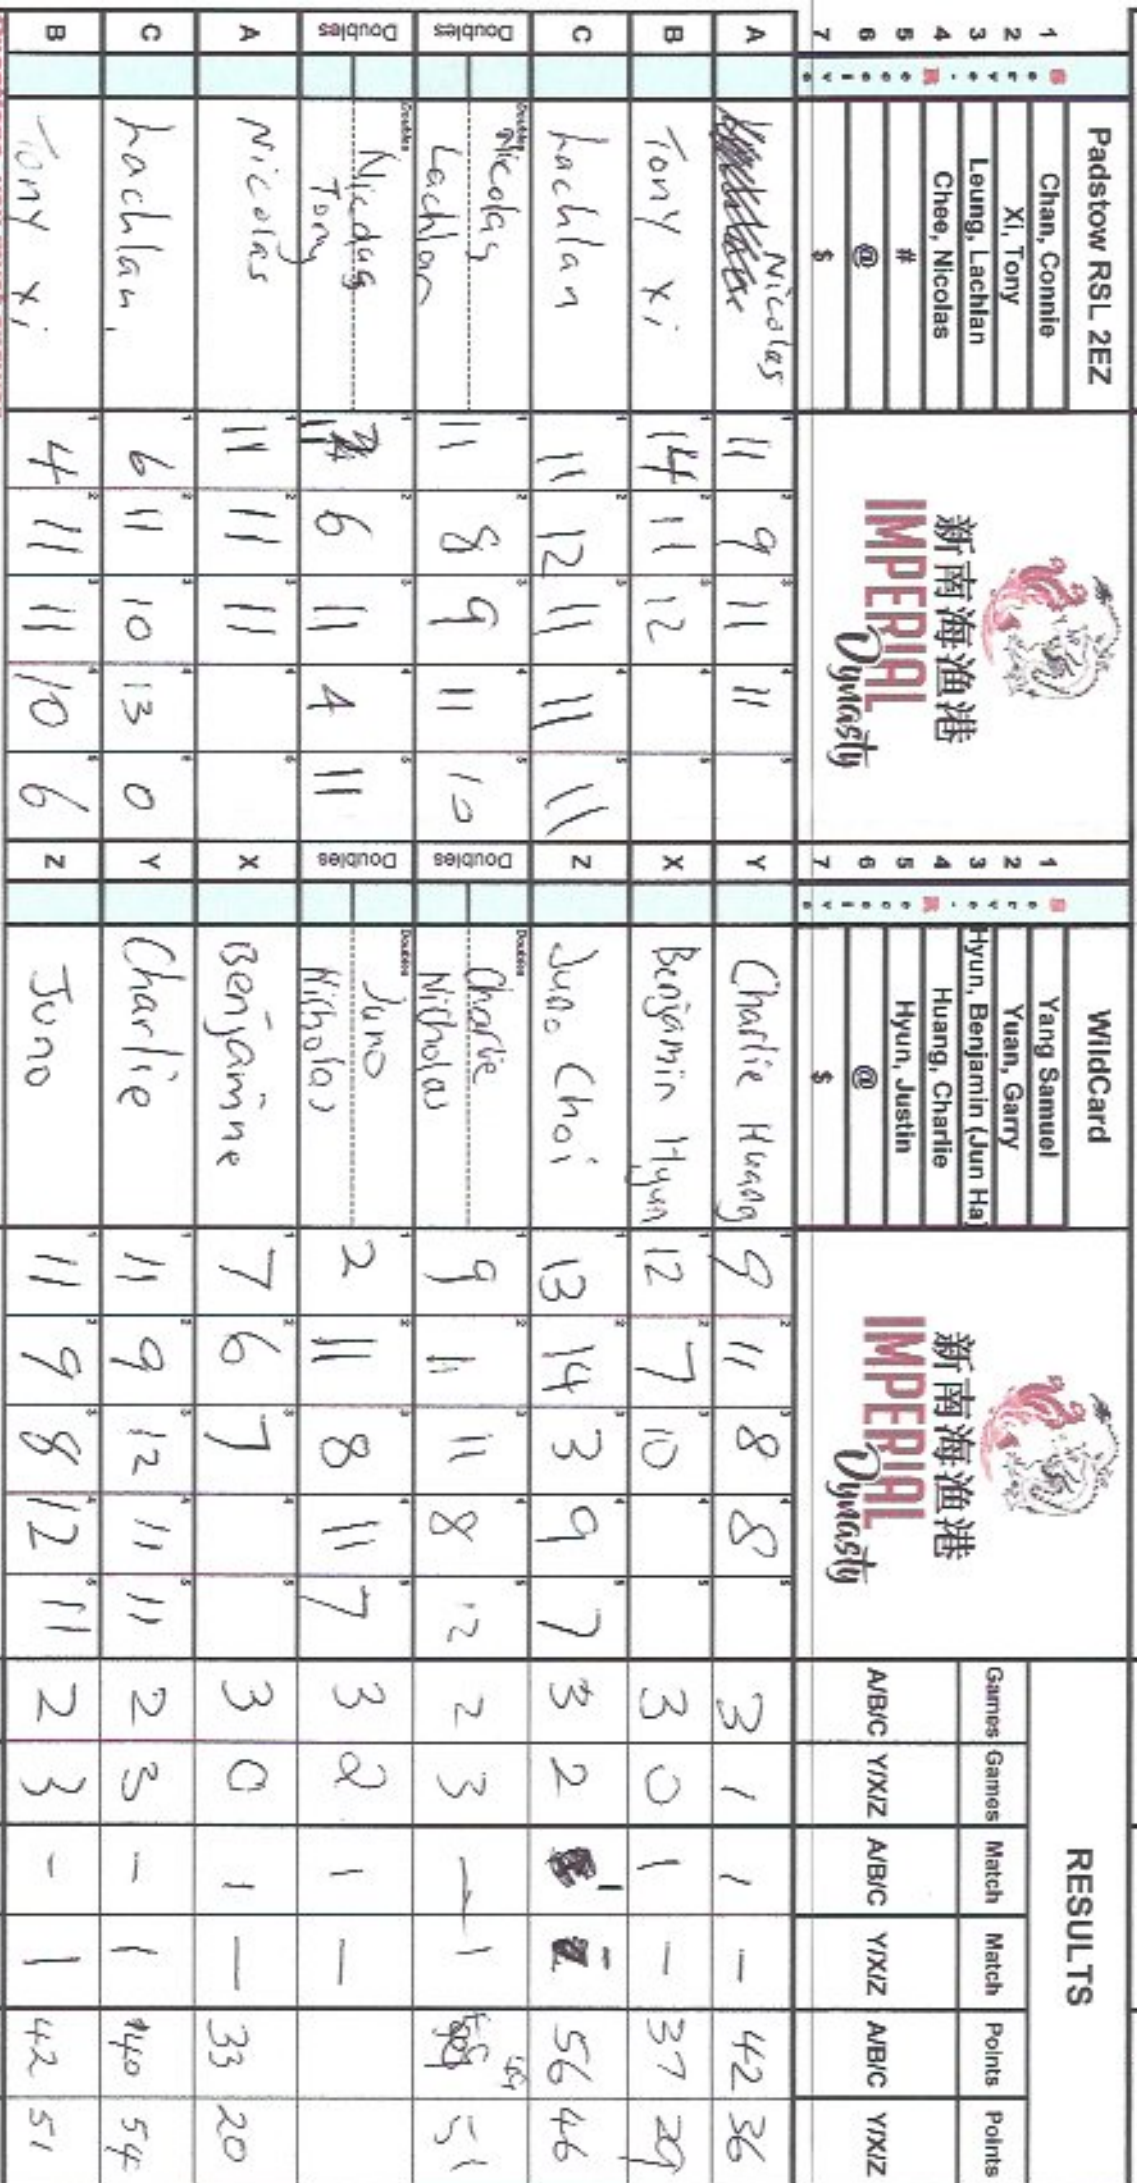 Padstow RSL 2EZ
1 Chan, Connie
2 Xi, Tony
3 Leung, Lachlan
4 Chee, Nicolas
5 #
6 @
7 $
新南海渔港
IMPERIAL
Dynasty
WildCard
1 Yang Samuel
2 Yuan, Garry
3 Hyun, Benjamin (Jun Ha)
4 Huang, Charlie
5 Hyun, Justin
6 @
7 $
新南海渔港
IMPERIAL
Dynasty
RESULTS
Games Games Match Match Points Points
A/B/C Y/X/Z A/B/C Y/X/Z A/B/C Y/X/Z
A Nicolas 11 9 11 11 Y Charlie Huang 9 11 8 8 3 1 1 - 42 36
B Tony Xi 14 11 12 X Benjamin Hyun 12 7 10 3 0 1 - 37 29
C Lachlan 11 12 11 11 11 Z Juno Choi 13 14 3 9 7 3 2 1 - 56 46
Doubles Nicolas 11 8 9 11 10 Doubles Charlie 9 11 11 8 12 2 3 - 1 51
Lachlan Nicholas
Doubles Nicolas 11 6 11 4 11 Doubles Juno 2 11 8 11 7 3 2 1 -
Tony Nicholas
A Nicolas 11 11 11 X Benjamine 7 6 7 3 0 1 - 33 20
C Lachlan 6 11 10 13 0 Y Charlie 11 9 12 11 11 2 3 - 1 40 54
B Tony Xi 4 11 11 10 6 Z Juno 11 9 8 12 11 2 3 - 1 42 51